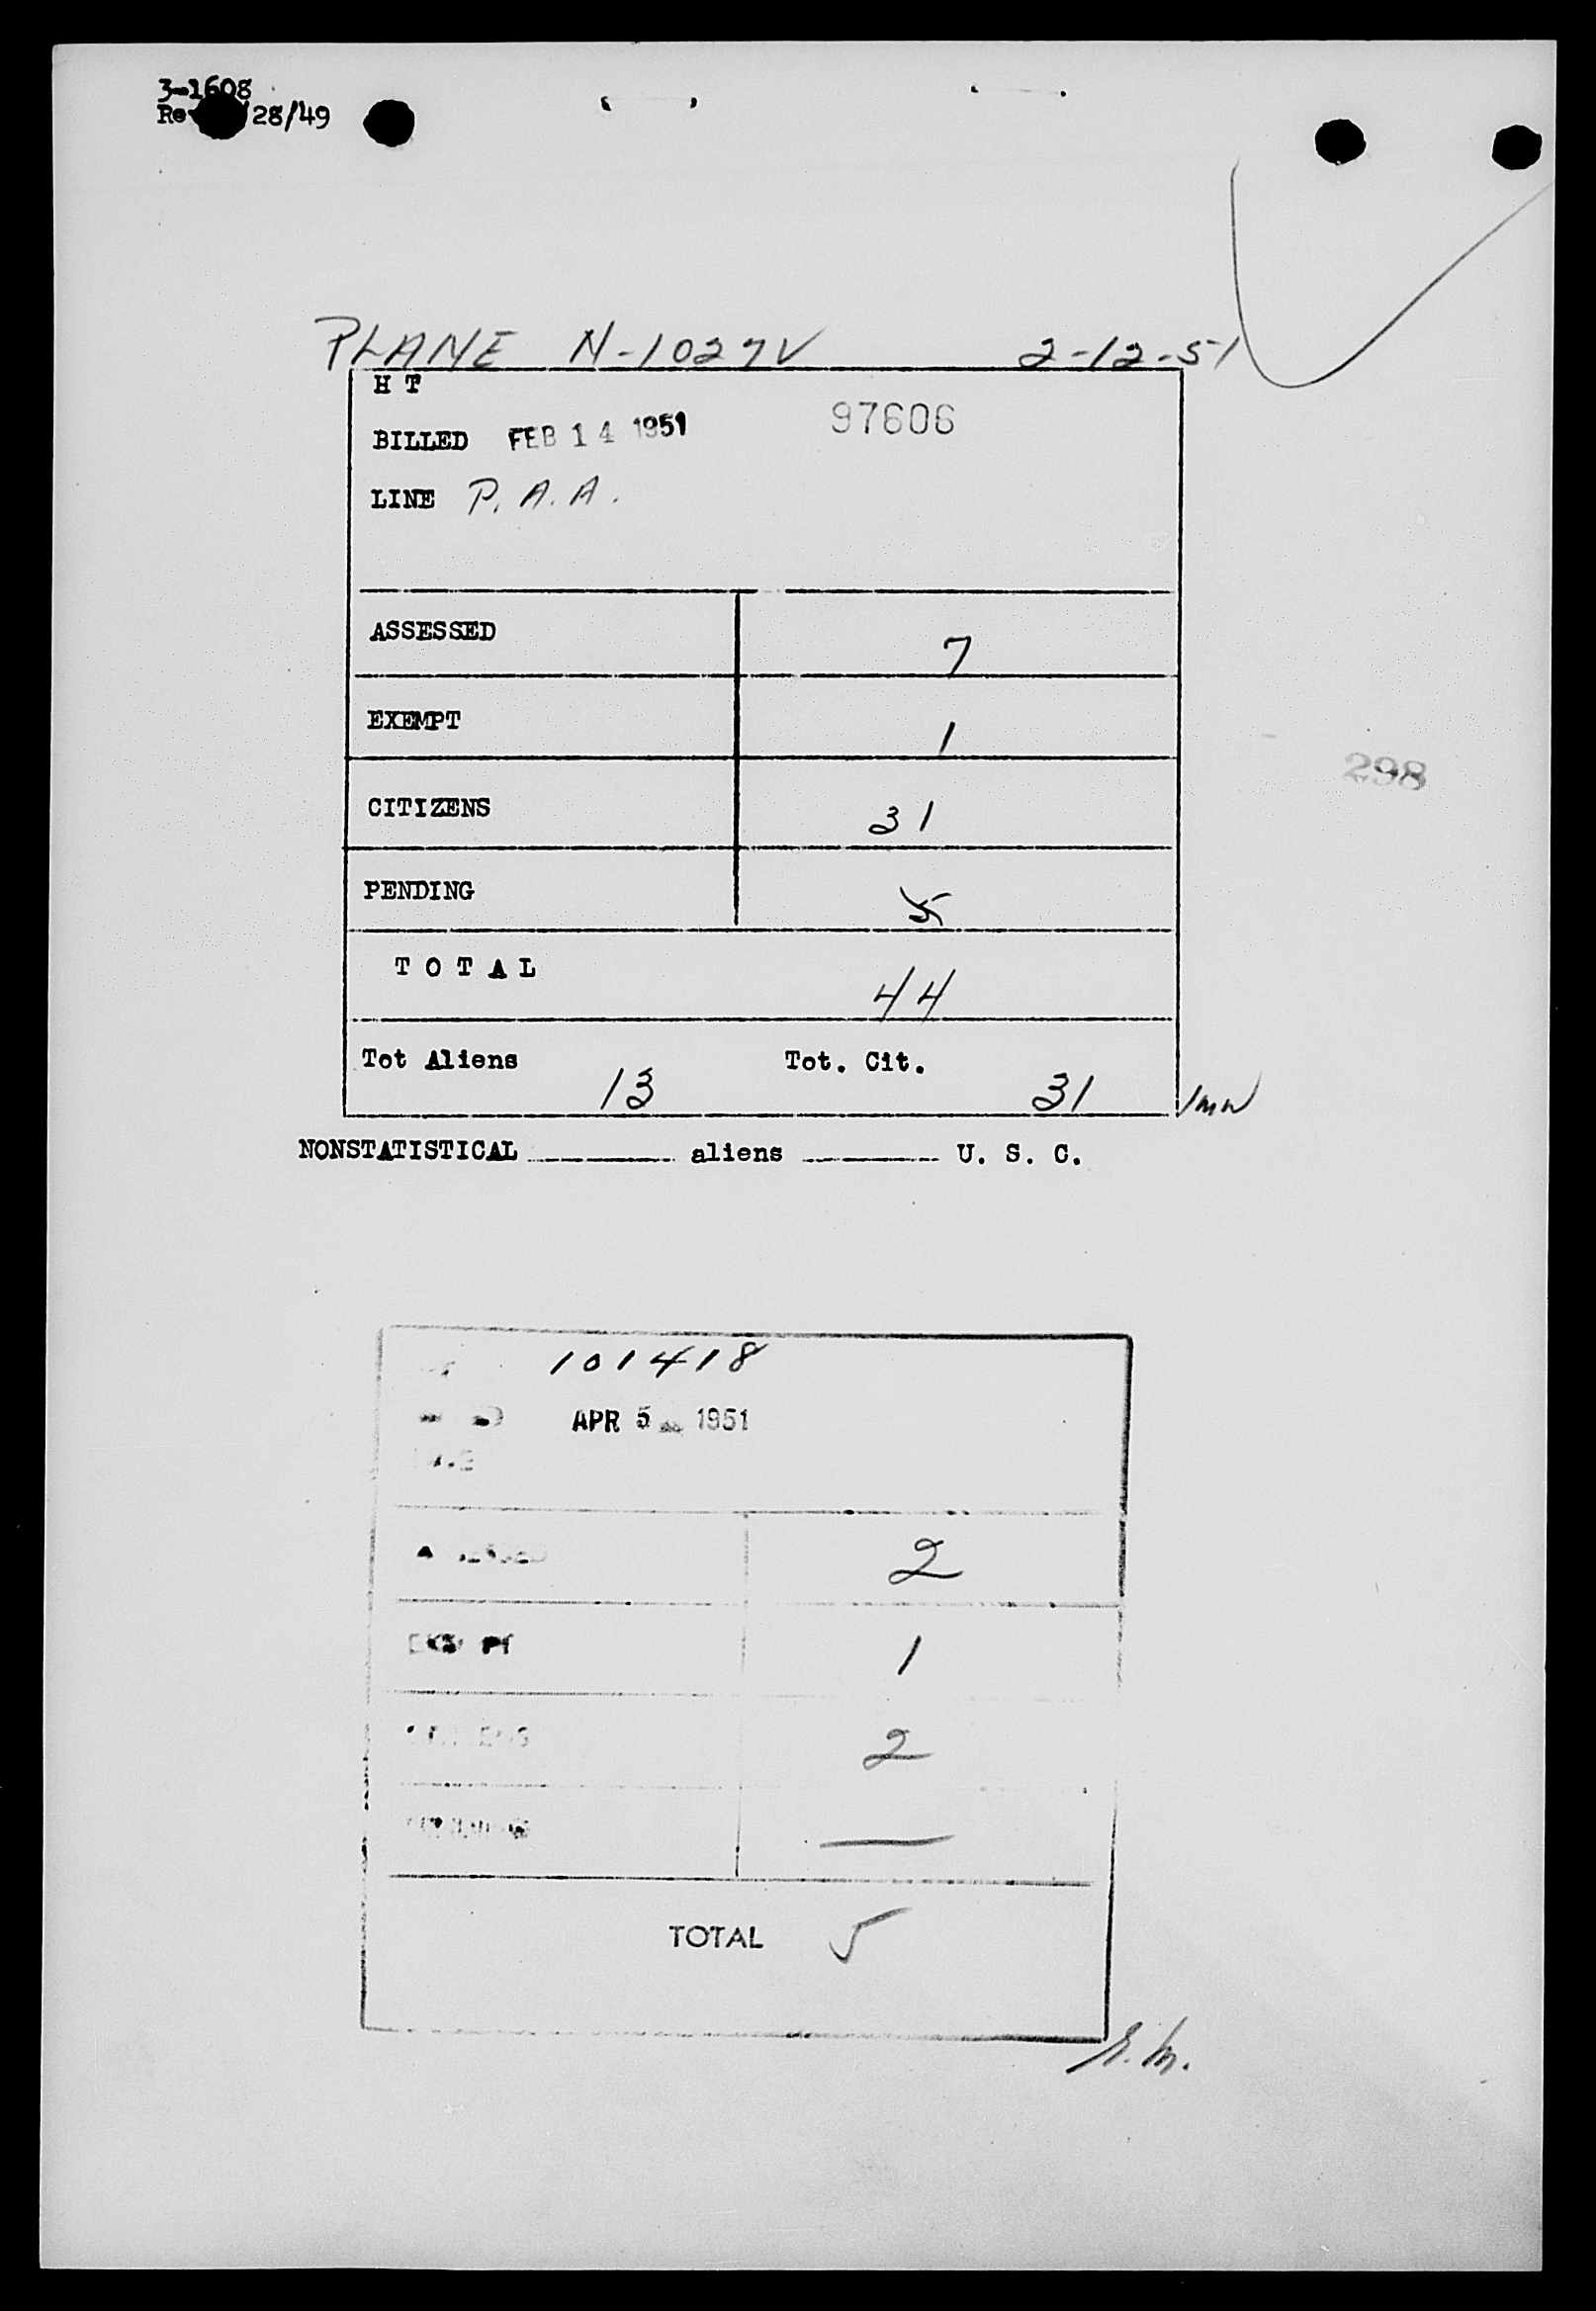 3-1608
Re 28/49
PLANE N-1027V 2-12-51
H T
BILLED FEB 14 1951 97606
LINE P. A. A.
ASSESSED 7
EXEMPT 1
298
CITIZENS 31
PENDING 5
T O T A L 44
Tot Aliens 13 Tot. Cit. 31
NONSTATISTICAL aliens U. S. C.
101418
APR 5 1951
2
1
2
—
TOTAL 5